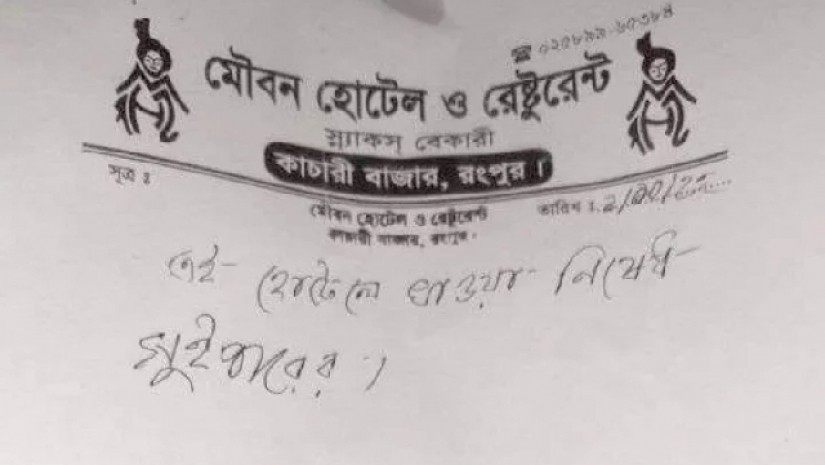 মৌবন হোটেল ও রেষ্টুরেন্ট
স্ন্যাকস্ বেকারী
কাচারী বাজার, রংপুর।
সূত্র ঃ
মৌবন হোটেল ও রেষ্টুরেন্ট
কাচারী বাজার, রংপুর।
তারিখ ঃ
এই হোটেলে খাওয়া নিষেধ
সুইপারের।